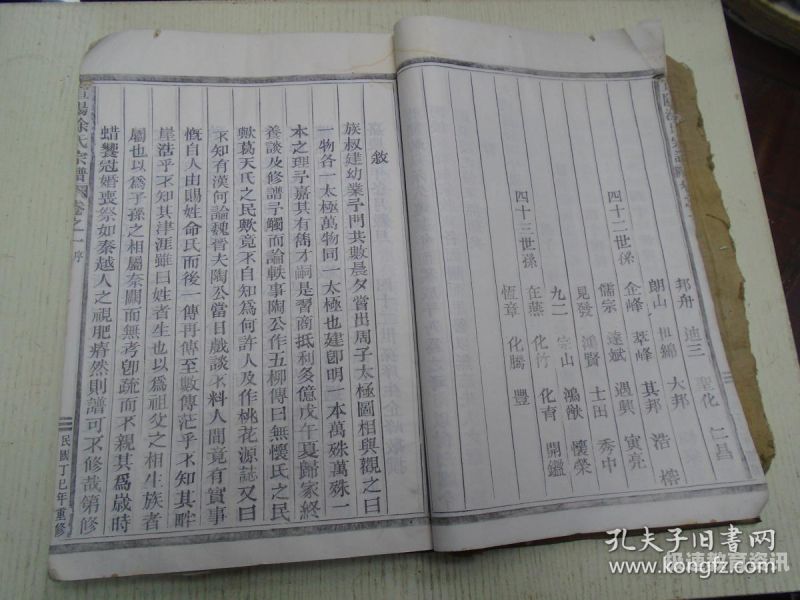 邦舟 迪三 聖化 仁昌
朗山 世綿 大邦
四十二世孫
企峰 莘峰 其邦 浩 榕
儒宗 遠斌 遇興 寅亮
見發 鴻賢 士田 秀中
九二 宗山 鴻猷 懷榮
四十三世孫
在燕 化竹 化育 開鑑
恆章 化騰 豐
敘
族叔建幼業予門共數晨夕嘗出周子太極圖相與觀之曰
一物各一太極萬物同一太極也建卽明一本萬殊萬殊一
本之理予嘉其有雋才嗣是習商抵利多億戊午夏歸家終
善談及修譜予觸而論軼事陶公作五柳傳曰無懷氏之民
歟葛天氏之民歟竟不自知為何許人及作桃花源誌又曰
不知有漢何論魏晉夫陶公當日戲談不料人間竟有實事
慨自人由賜姓命氏而後一傳再傳至數傳茫乎不知其畔
崖浩乎不知其津涯雖曰姓者生也以為祖父之相生族者
屬也以為子孫之相屬奈闕而無考卽疏而不親其為歲時
蜡饗冠婚喪祭如秦越人之視肥瘠然則譜可不修哉第修
陽徐氏宗譜 卷之一 序
民國丁巳年重修
孔夫子旧书网
kongfz.com
极速教育资讯